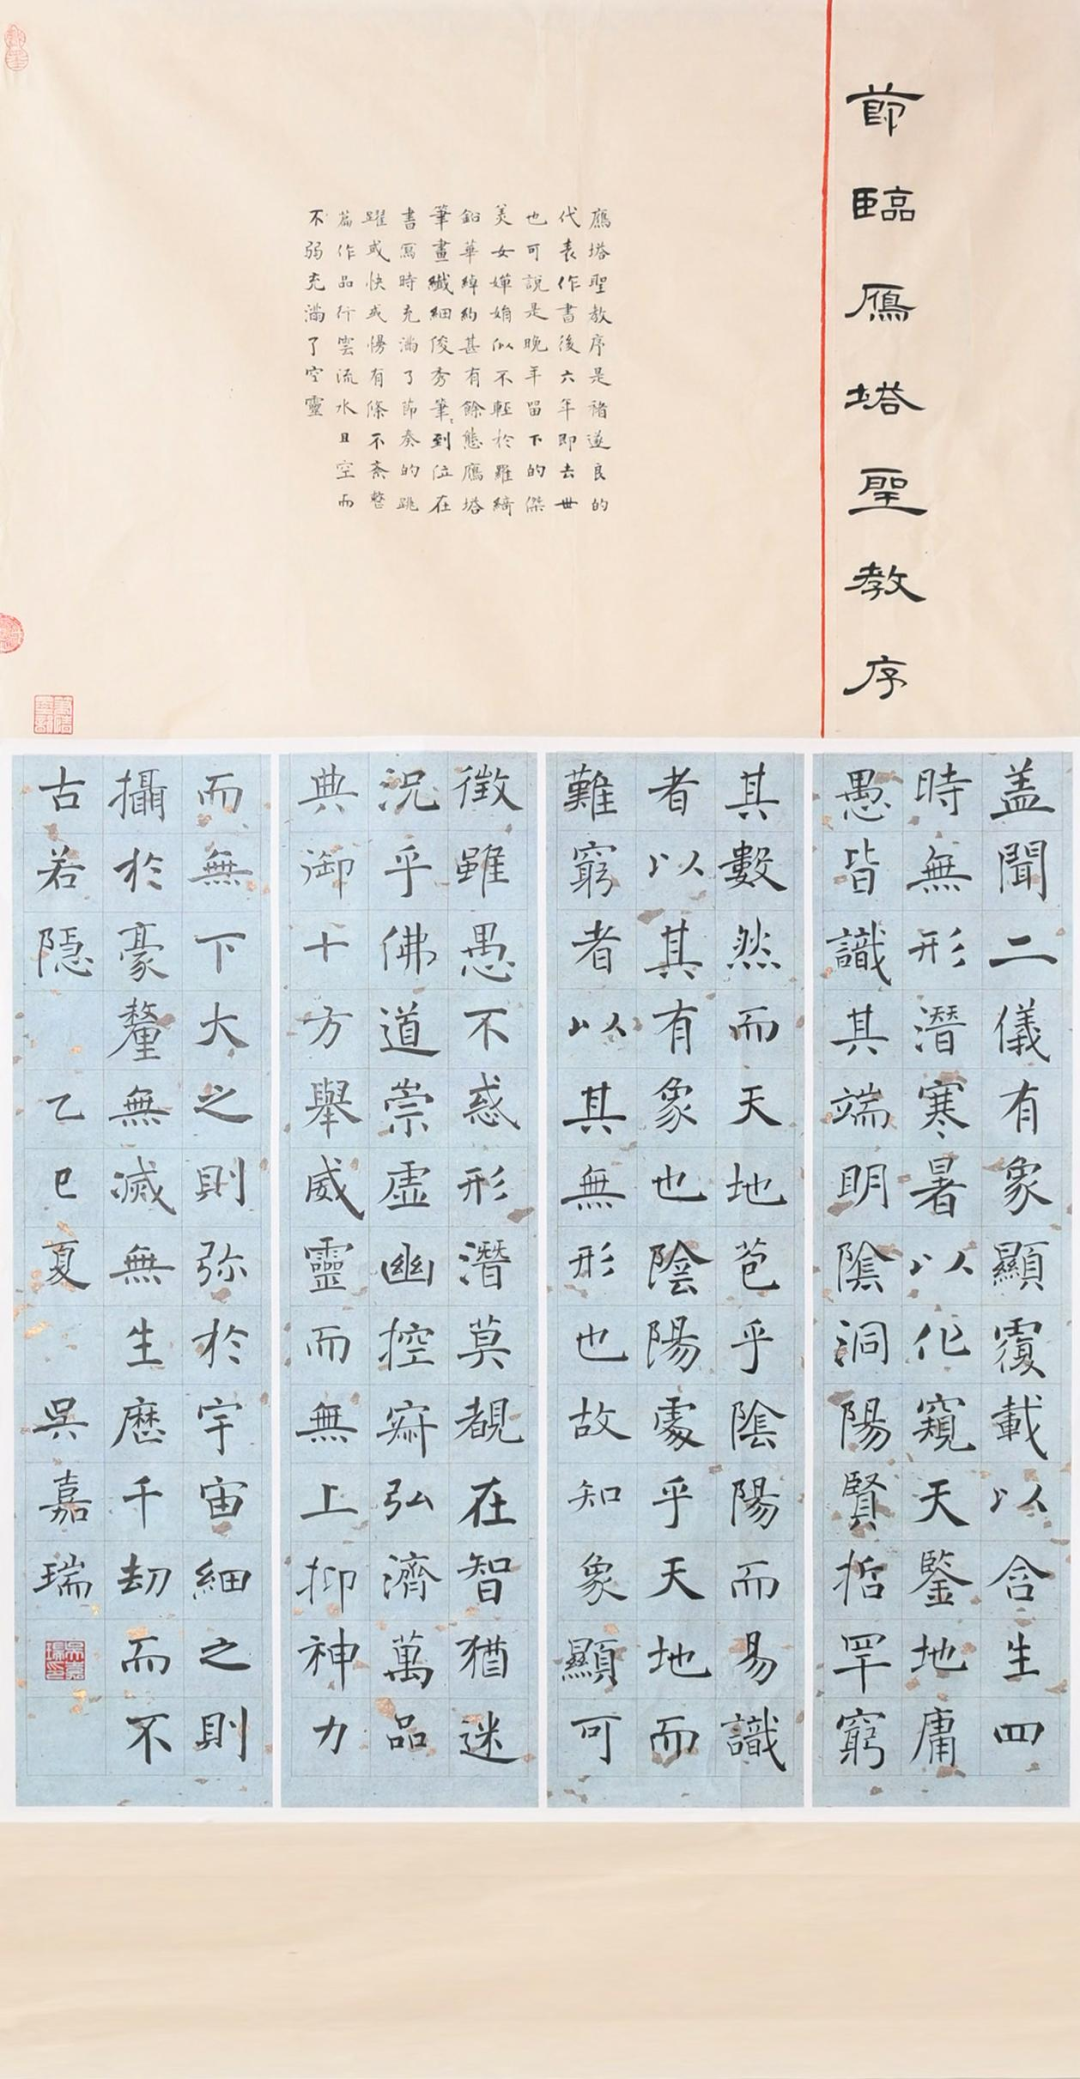 莭臨鴈塔聖教序
鴈塔聖教序是褚遂良的
代表作書後六年即去世
也可說是晚年留下的傑
美女嬋娟似不輕於羅綺
鉛華綽約甚有餘態鴈塔
筆畫纖細俊秀筆〻到位在
書寫時充滿了節奏的跳
躍或快或慢有條不紊整
篇作品行雲流水且空而
不弱充滿了空靈
盖聞二儀有象顯覆載以含生四
時無形潛寒暑以化窺天鑒地庸
愚皆識其端明陰洞陽賢哲罕窮
其數然而天地苞乎陰陽而易識
者以其有象也陰陽處乎天地而
難窮者以其無形也故知象顯可
徵雖愚不惑形潛莫覩在智猶迷
況乎佛道崇虛幽控寂弘濟萬品
典御十方舉威靈而無上抑神力
而無下大之則弥於宇宙細之則
攝於豪釐無滅無生歷千劫而不
古若隱 乙巳夏 吳嘉瑞